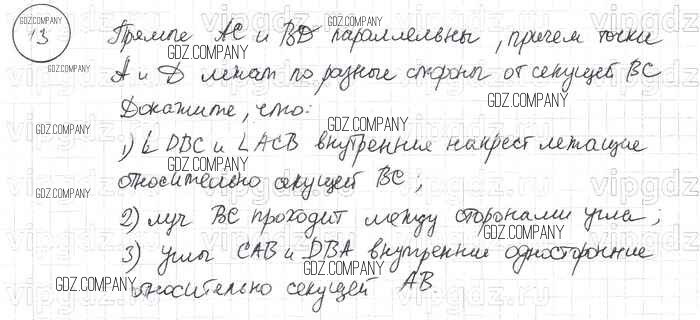 13
Прямые AC и BD параллельны, причем точки
A и D лежат по разные стороны от секущей BC
Докажите, что:
1) ∠ DBC и ∠ACB внутренние накрест лежащие
относительно секущей BC;
2) луч BC проходит между сторонами угла;
3) углы CAB и DBA внутренние односторонние
относительно секущей AB.
GDZ.COMPANY
GDZ.COMPANY
GDZ.COMPANY
GDZ.COMPANY
GDZ.COMPANY
GDZ.COMPANY
GDZ.COMPANY
GDZ.COMPANY
GDZ.COMPANY
GDZ.COMPANY
GDZ.COMPANY
GDZ.COMPANY
GDZ.COMPANY
GDZ.COMPANY
vipgdz